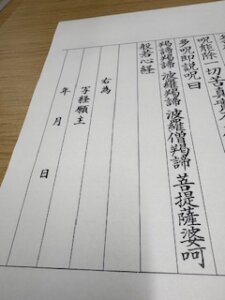 呪能除一切苦真實
多呪即説呪曰
羯諦羯諦 波羅羯諦 波羅僧羯諦 菩提薩婆呵
般若心経
右為
写経願主
年 月 日